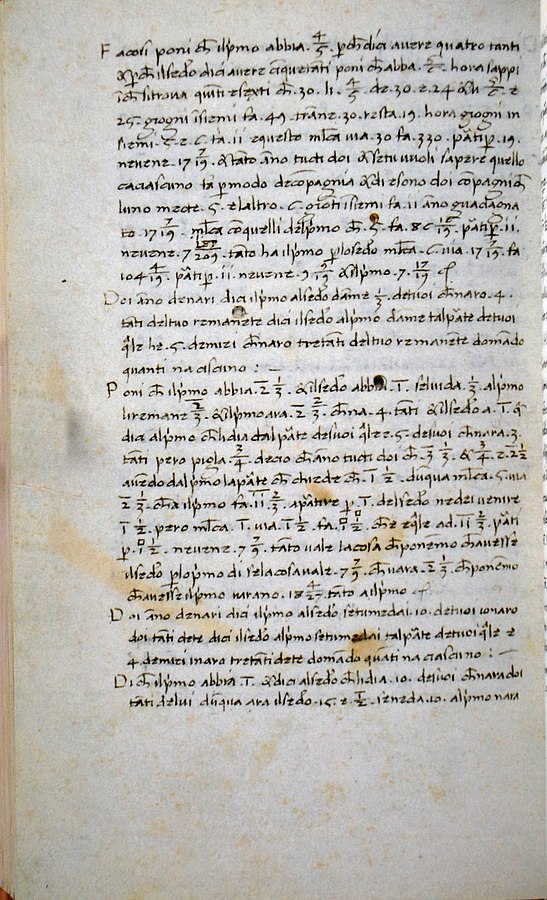 F acosi poni ch̄ il p̄mo abbia . 4/5 . p̄ch̄ dici avere quatro tanti
& p̄ch̄ il sc̄do dici avere cinque tanti poni ch̄ abba . hora sappi
i ch̄ si trova ch̄ . 30 . li . 4/5 . de . 30 . e . 24 & e
25 . giogni i siemi fa . 49 . tranne . 30 . resta . 19 . hora giogni in
siemi . fa . 11 e queste ml̄ca via . 30 fa . 330 . p̄ti p̄ . 19 .
nevene . 17 7/19 . & tāto āno tucti doi & se tu vuoli sapere quello
ca ciascuno fa p̄ modo de cōpagnia & di e sono doi cōpagni ch̄
luno mecte . 5 . e laltro . 6 . giōti i siemi fa . 11 āno guadagna
to . 17 7/19 . ml̄ca cō quelli del p̄mo ch̄ . 5 . fa . 86 16/19 . p̄ti p̄ . 11 .
nevene . 7 187/209 . tāto ha il p̄mo p̄ lo sc̄do ml̄ca . 6 . via . 17 7/19 fa
104 4/19 . p̄ti p̄ . 11 . nevene . 9 & il p̄mo . 7 . 17/19
D oi āno denari dici il p̄mo al sc̄do dāme 1/3 . de tuoi ch̄ naro . 4 .
tāti del tuo remanēte dici il sc̄do al p̄mo dāme tal p̄te de tuoi
q̄le he . 5 . de miei ch̄ naro tre tāti del tuo remanēte domādo
quanti na ciascuno : —
P oni ch̄ il p̄mo abbia . 2 1/3 . & il sc̄do abbia . 1 . se lui da . 1/3 . al p̄mo
li remane 2/3 . & il p̄mo ara . 2 2/3 . ch̄ na . 4 . tāti & il sc̄do a . 1 . &
dice al p̄mo ch̄ li dia tal p̄te de suoi q̄le e . 5 . de suoi ch̄ nara . 3 .
tāti pero pigla 3/4 . de cio ch̄ āno tucti doi ch̄ . 3 1/3 . & 3/4 . e . 2 1/2
avēdo dal p̄mo la p̄te ch̄ chiede ch̄ . 1 1/2 . dūqua ml̄ca . 5 . via
2 1/3 . ch̄ a il p̄mo fa . 11 2/3 . a p̄tire p̄ . 1 . del sc̄do ne dei venire
1 1/2 . pero ml̄ca . 1 . via . 1 1/2 . fa . 1 1/2 . ch̄ e eq̄le ad . 11 2/3 . p̄ti
p̄ . 1 1/2 . nevene . 7 7/9 . tāto vale la cosa ch̄ ponēmo ch̄ avesse
il sc̄do p̄ lo p̄mo di se la cosa vale . 7 7/9 . ch̄ vara . 2 1/3 . ch̄ ponēmo
ch̄ avesse il p̄mo varano . 18 4/27 . tāto a il p̄mo
D oi āno denari dici il p̄mo al sc̄do se tu me dai . 10 . de tuoi io naro
doi tāti de te dici il sc̄do al p̄mo se tu me dai tal p̄te de tuoi q̄le e
4 . de miei i naro tre tāti de te domādo quāti na ciascuno : —
D i ch̄ il p̄mo abbia . 1 . & dici al sc̄do ch̄ li dia . 10 . de suoi ch̄ nara doi
tāti de lui dūqua ara il sc̄do . 15 . e . 1/2 . se ne da . 10 . al p̄mo nara